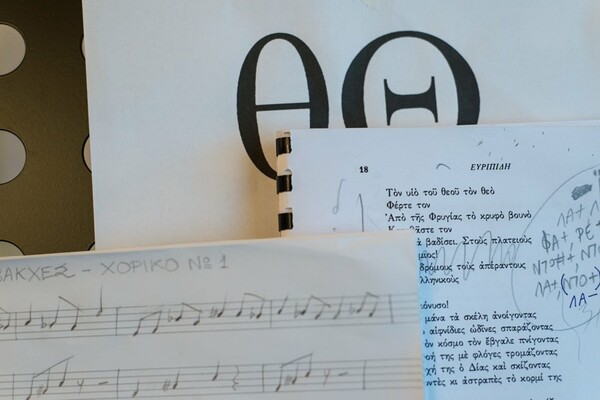 θΘ
18 ΕΥΡΙΠΙΔΗ
Τὸν υἱὸ τοῦ θεοῦ τὸν θεὸ
Φέρτε τον
Ἀπὸ τῆς Φρυγίας τὸ κρυφὸ βουνὸ
βάστε τον
βαδίσει. Στοὺς πλατειοὺς
δρόμους τοὺς ἀπέραντους
λληνικούς
όνυσο!
μάνα τὰ σκέλη ἀνοίγοντας
αἰφνίδιες ὠδῖνες σπαράζοντας
ν κόσμο τὸν ἔβγαλε πνίγοντας
οή της μὲ φλόγες τρομάζοντας
χή της ὁ Δίας καὶ σκίζοντας
ντὲς κι ἀστραπὲς τὸ κορμί της
ΛΑ+
ΦΑ+, ΡΕ+
ΛΑ+, (ΝΤΟ+)
ΛΑ-
ΒΑΚΧΕΣ – ΧΟΡΙΚΟ Nº 1